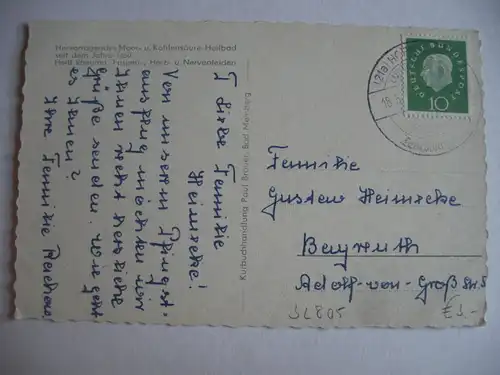 Hervorragendes Moor- u. Kohlensäure-Heilbad
seit dem Jahre 1901
Heilt Rheuma, Frauen-, Herz- u. Nervenleiden
Liebe Familie
Heinrecke!
Von unserm Pfingst-
ausflug möchten wir
Ihnen recht herzliche
Grüße senden. Wie geht
es Ihnen?
Ihre Familie
Kurbuchhandlung Paul Brauer, Bad Meinberg
(21a) HO
DEUTSCHE BUNDESPOST
10
Familie
Gustav Heinrecke
Bayreuth
Adolf-von-Groß-Str. 8
SL805
€1.-